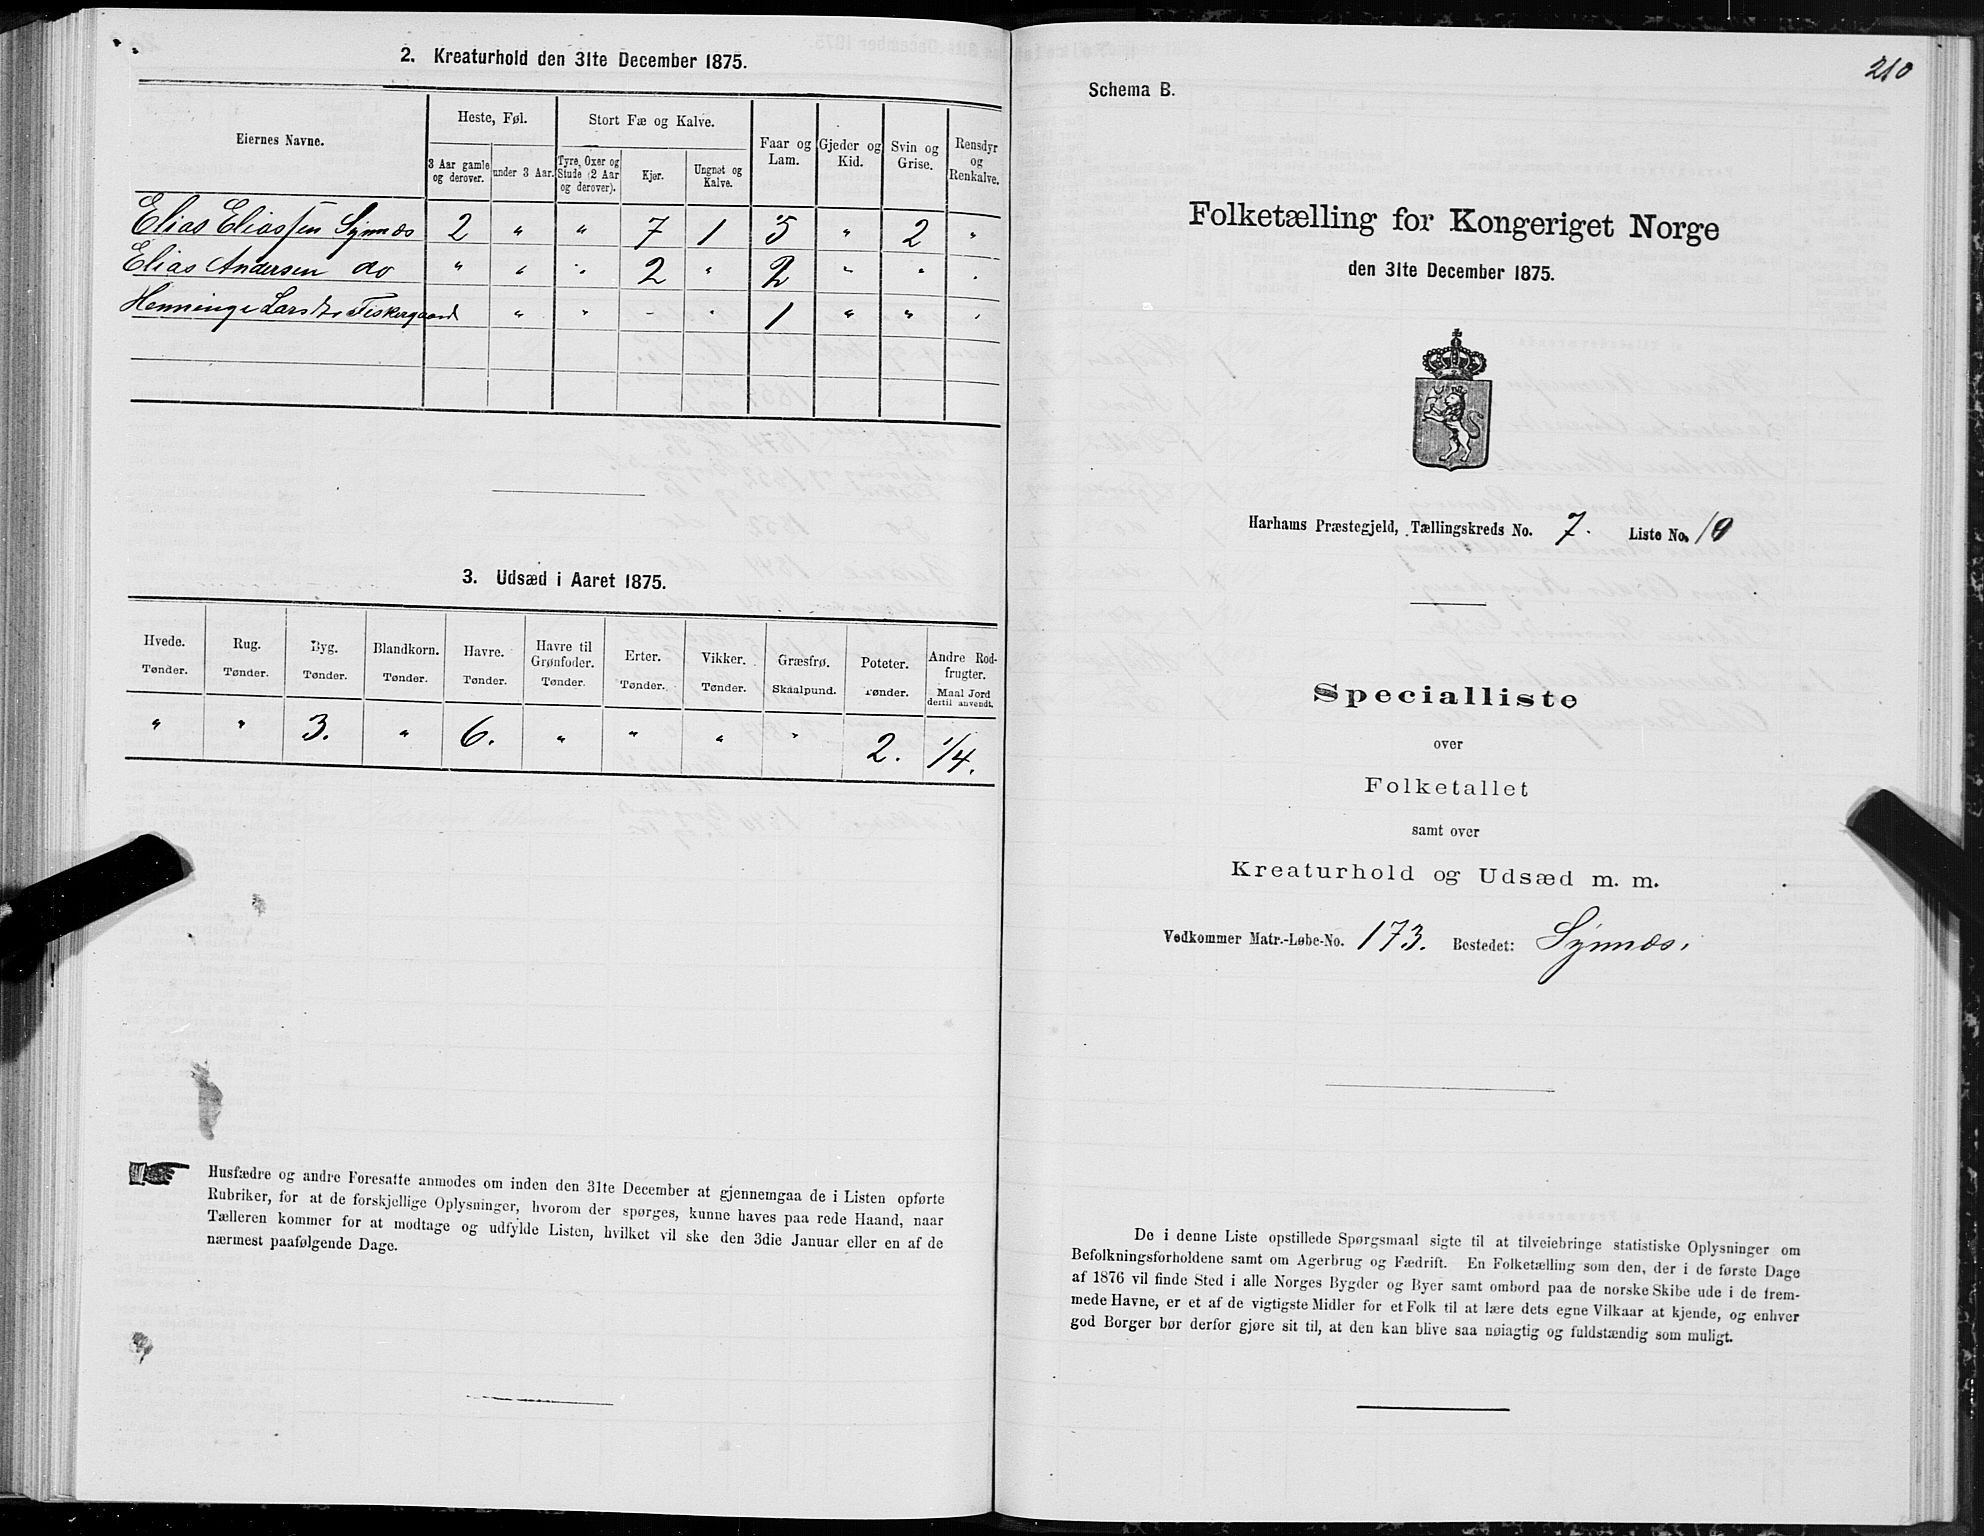 2. Kreaturhold den 31te December 1875.
Eiernes Navne.
Heste, Føl.
Stort Fæ og Kalve.
Faar og Lam.
Gjeder og Kid.
Svin og Grise.
Rensdyr og Renkalve.
3 Aar gamle og derover.
under 3 Aar.
Tyre, Oxer og Stude (2 Aar og derover).
Kjør.
Ungnøt og Kalve.
Elias Eliassen Synnæs 2 " " 7 1 5 " 2 "
Elias Andersen do " " " 2 " 2 " " "
Henninge Larsdr Fiskergaard " " - " 1 " " "
3. Udsæd i Aaret 1875.
Hvede. Rug. Byg. Blandkorn. Havre. Havre til Grønfoder. Erter. Vikker. Græsfrø. Poteter. Andre Rodfrugter.
Tønder. Tønder. Tønder. Tønder. Tønder. Tønder. Tønder. Tønder. Skaalpund. Tønder. Maal Jord dertil anvendt.
" " 3. " 6. " " " " 2. 1/4.
Husfædre og andre Foresatte anmodes om inden den 31te December at gjennemgaa de i Listen opførte
Rubriker, for at de forskjellige Oplysninger, hvorom der spørges, kunne haves paa rede Haand, naar
Tælleren kommer for at modtage og udfylde Listen, hvilket vil ske den 3die Januar eller en af de
nærmest paafølgende Dage.
210
Schema B.
Folketælling for Kongeriget Norge
den 31te December 1875.
Harhams Præstegjeld, Tællingskreds No. 7. Liste No. 10
Specialliste
over
Folketallet
samt over
Kreaturhold og Udsæd m. m.
Vedkommer Matr.-Løbe-No. 173. Bostedet: Synnæs.
De i denne Liste opstillede Spørgsmaal sigte til at tilveiebringe statistiske Oplysninger om
Befolkningsforholdene samt om Agerbrug og Fædrift. En Folketælling som den, der i de første Dage
af 1876 vil finde Sted i alle Norges Bygder og Byer samt ombord paa de norske Skibe ude i de frem-
mede Havne, er et af de vigtigste Midler for et Folk til at lære dets egne Vilkaar at kjende, og enhver
god Borger bør derfor gjøre sit til, at den kan blive saa nøiagtig og fuldstændig som muligt.